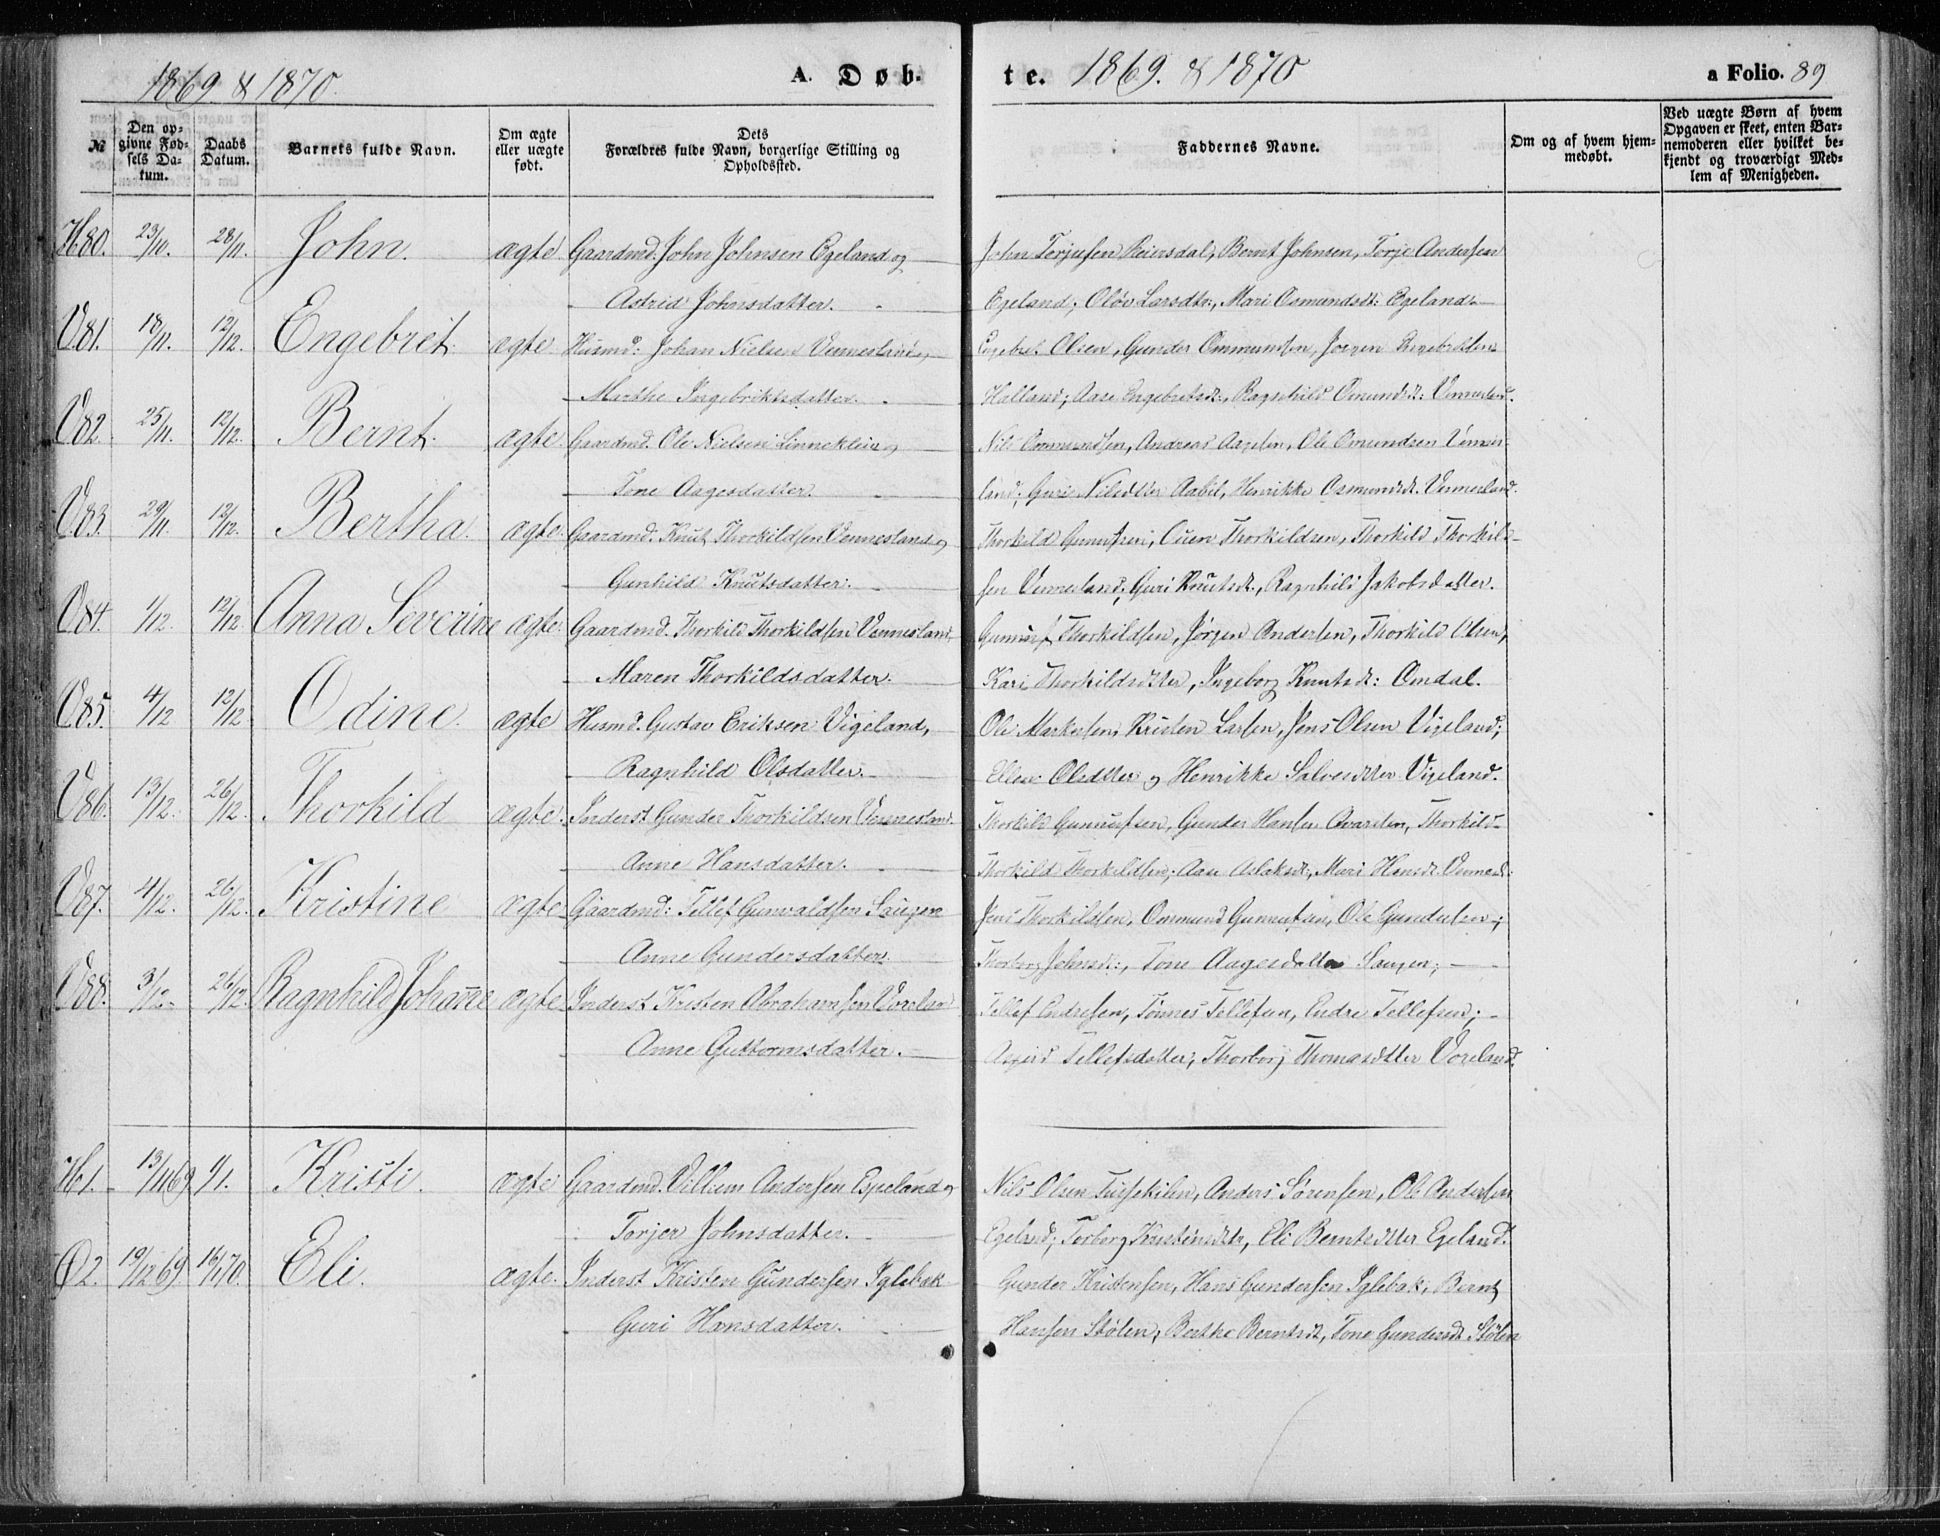 1869 & 1870 A. Døb-
te. 1869. & 1870 a Folio. 89
№
Den op-
givne Fød-
sels Da-
tum.
Daabs
Datum.
Barnets fulde Navn.
Om ægte
eller uægte
født.
Dets
Forældres fulde Navn, borgerlige Stilling og
Opholdssted.
Faddernes Navne.
Om og af hvem hjem-
medøbt.
Ved uægte Børn af hvem
Opgaven er skeet, enten Bar-
nemoderen eller hvilket be-
kjendt og troværdigt Med-
lem af Menigheden.
H80. 23/10. 28/11. John. ægte Gaardmd. John Johnsen Egeland og
Astrid Johnsdatter.
John Terjusen Reiersdal, Bernt Johnsen, Torje Andersen
Egeland; Oløv Larsdtr., Mari Osmundsdt: Egeland.
V81. 18/11. 12/12. Engebret. ægte Husmd: Johan Nielsen Vennesland,
Marthe Ingebriktsdatter.
Engebret Olsen, Gunder Ommundsen, Jørgen Engebretsen
Halland; Aase Engebretsdt., Ragnhild Omundsdt: Vennesland.
V82. 25/11. 12/12. Bernt. ægte Gaardmd. Ole Nielsen Linneklein og
Tone Aagesdatter.
Nils Ommundsen, Andreas Aagesen, Ole Omundsen Vennes-
land; Guri Nilsdtter Aabel, Henrikke Osmundsdt. Vennesland.
V83. 29/11. 12/12. Bertha. ægte Gaardmd. Knut Thorkildsen Vennesland og
Gunhild Knutsdatter.
Thorkild Gunnufsen, Ouen Thorkildsen, Thorkild Thorkild-
sen Vennesland; Guri Knutsdt., Ragnhild Jakobsdatter.
V84. 1/12. 12/12. Anna Severine ægte Gaardmd. Thorkild Thorkildsen Vennesland,
Maren Thorkildsdatter.
Gunnuf Thorkildsen, Jørgen Andersen, Thorkild Olsen,
Kari Thorkildsdtter, Ingeborg Knutsdt: Omdal.
V85. 4/12 12/12 Odine. ægte Husmd. Gustav Eriksen Vigeland,
Ragnhild Olsdatter.
Ole Markussen, Kristen Larsen, Jens Olsen Vigeland;
Ellen Olsdtter og Henrikke Salvesdtter Vigeland.
V86. 13/12. 26/12. Thorkild ægte. Inderst Gunder Thorkildsen Vennesland.
Anne Hansdatter.
Thorkild Gunnufsen, Gunder Hansen Qvarsten, Thorkild
Thorkild Thorkildsen; Aase Aslaksdt, Mari Hansdt. Vennesl.
V87. 4/12. 26/12. Kristine ægte Gaardmd: Tellef Gunvaldsen Saugen
Anne Gundersdatter.
Jens Thorkildsen, Ommund Gunnufsen, Ole Gundersen;
Thorborg Johnsdt:, Tone Aagesdatter Saugen;
V88. 3/12 26/12 Ragnhild Johanne ægte Inderst Kristen Abrahamsen Voreland
Anne Guttormsdatter.
Tellef Endresen, Tønnes Tellefsen, Endre Tellefsen;
Asgerd Tellefsdatter, Thorborg Thomasdtter Voreland.
H1. 13/11 69 1/1. Kristi. ægte Gaardmd. Villum Andersen Espeland og
Torjer Johnsdatter.
Nils Olsen, Anders Sørensen, Ole Andersen
Egeland; Torborg Kristensdtr, Eli Berntsdtter Egeland.
Ø2. 19/12 69. 16/1 70. Eli. ægte. Inderst Kristen Gundersen Iglebæk
Guri Hansdatter.
Gunder Kristensen, Hans Gundersen Iglebæk, Bernt
Hansen Stølen, Berthe Berntsdt, Tone Gundersdt Stølen